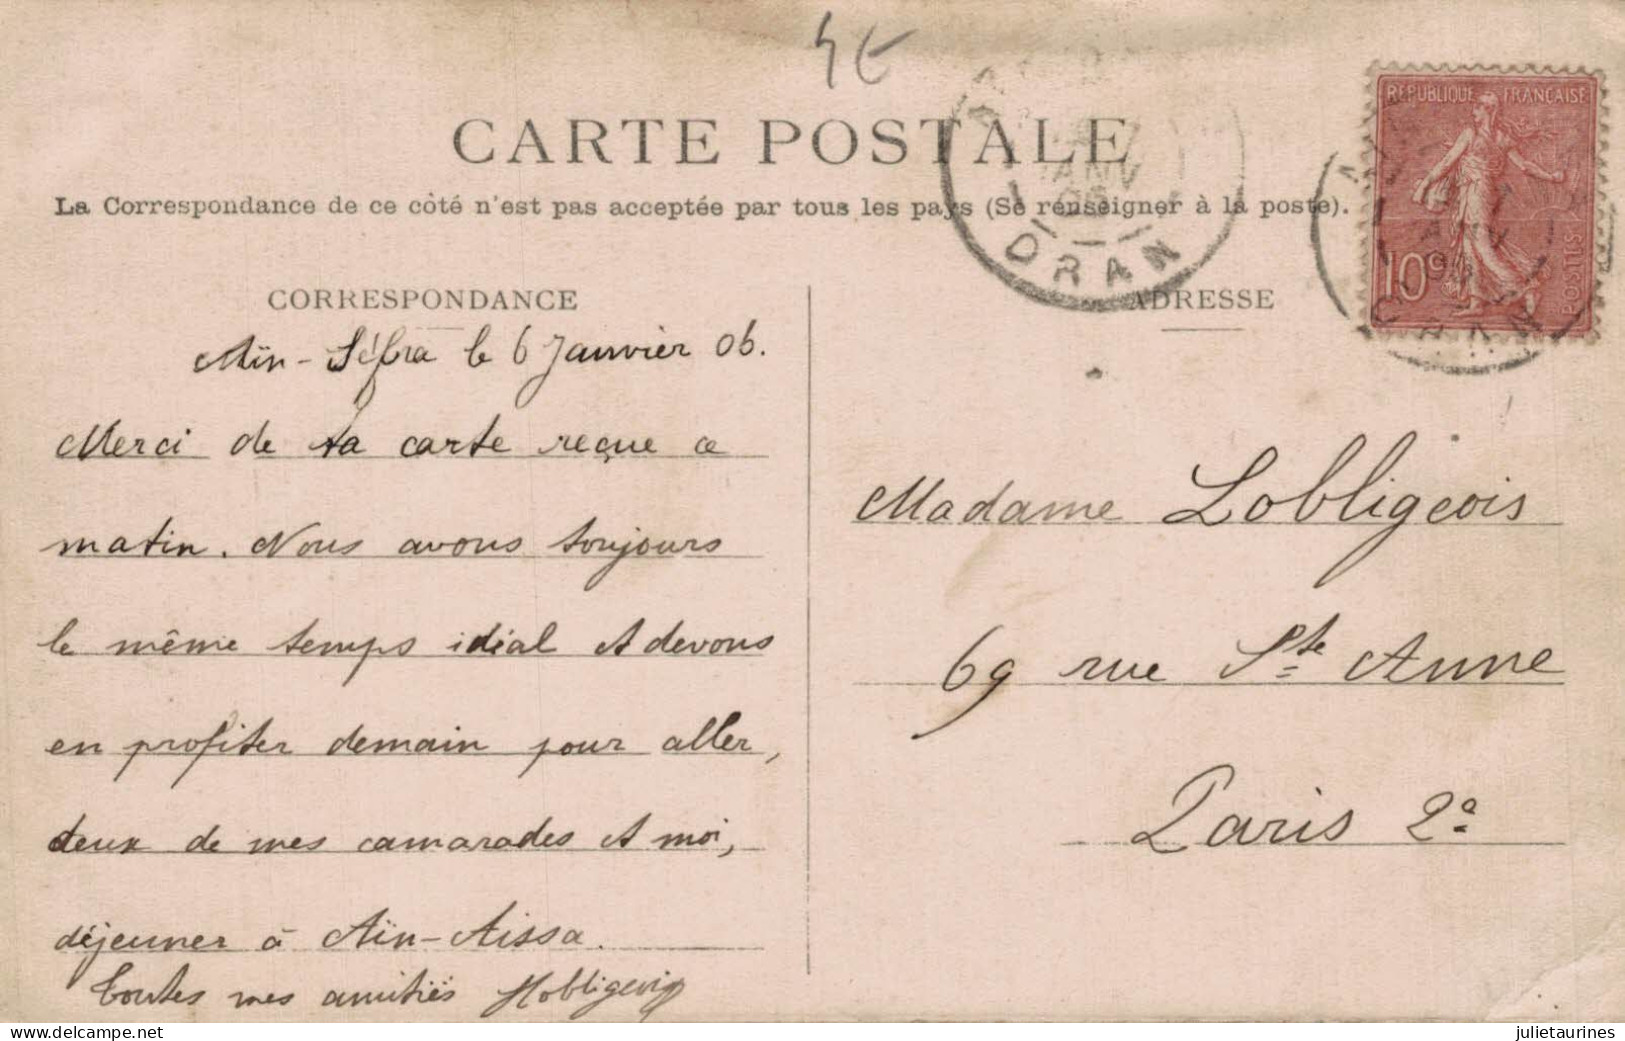 4E
CARTE POSTALE
La Correspondance de ce côté n'est pas acceptée par tous les pays (Se renseigner à la poste).
CORRESPONDANCE
Aïn-Séfra le 6 Janvier 06.
Merci de ta carte reçue ce
matin. Nous avons toujours
le même temps idéal et devons
en profiter demain pour aller,
deux de mes camarades et moi,
déjeuner à Aïn-Aissa.
Toutes mes amitiés
ADRESSE
Madame Lobligeois
69 rue Ste Anne
Paris 2e
RÉPUBLIQUE FRANÇAISE
10c
POSTES
JANV
06
ORAN
7
JANV
06
ORAN
delcampe.net
julietaurines